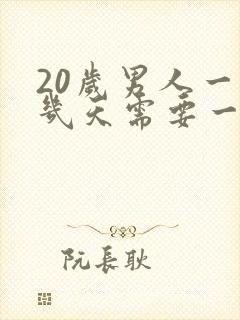 20歲男人一
幾天需要一
阮長耿